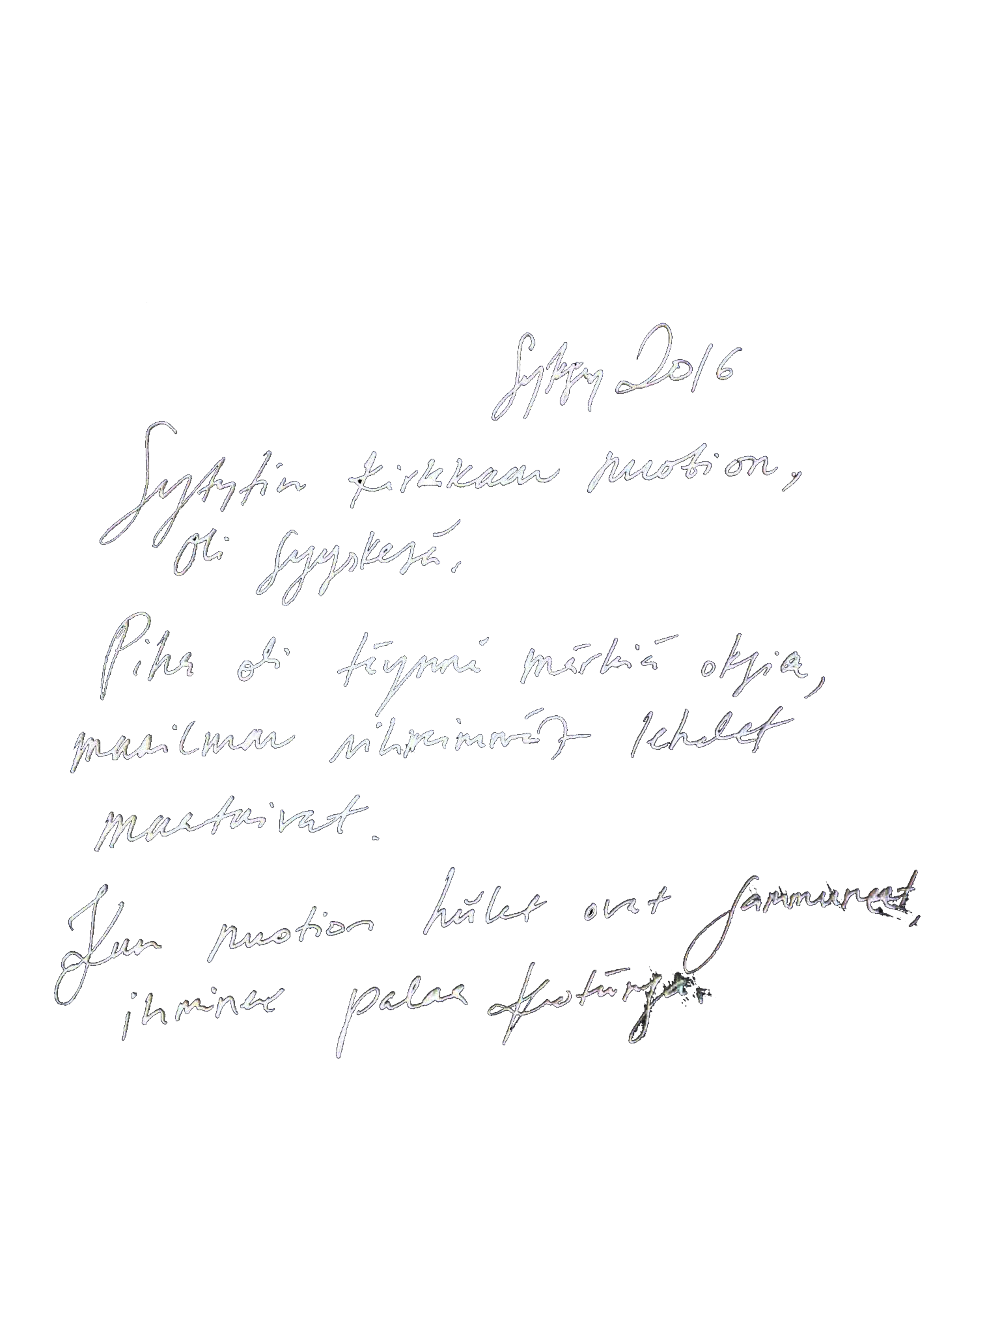 Syksy 2016
Sytytin kirkkaan nuotion,
oli syyskesä.
Piha oli täynnä märkiä oksia,
maailman vihreimmät lehdet
maatuivat.
Kun nuotion hiilet ovat sammuneet,
ihminen palaa kotiinsa.